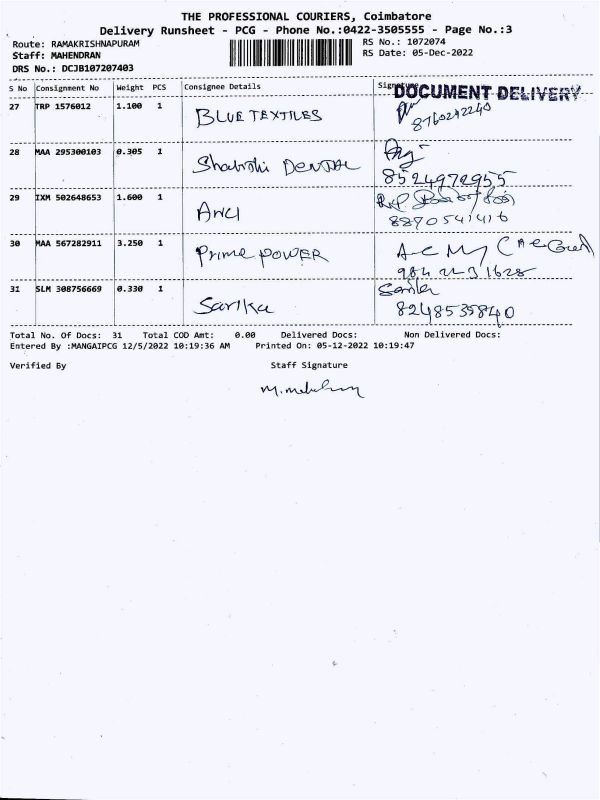 THE PROFESSIONAL COURIERS, Coimbatore
Delivery Runsheet - PCG - Phone No.:0422-3505555 - Page No.:3
Route: RAMAKRISHNAPURAM
RS No.: 1072074
Staff: MAHENDRAN
RS Date: 05-Dec-2022
DRS No.: DCJB107207403
S No Consignment No Weight PCS Consignee Details Signature
DOCUMENT DELIVERY
27 TRP 1576012 1.100 1 BLUE TEXTILES
28 MAA 295300103 0.305 1 DENTAL
8524972955
29 IXM 502648653 1.600 1
8870541416
30 MAA 567282911 3.250 1 Prime POWER
31 SLM 308756669 0.330 1 Sarika
8248535840
Total No. Of Docs: 31 Total COD Amt: 0.00 Delivered Docs: Non Delivered Docs:
Entered By :MANGAIPCG 12/5/2022 10:19:36 AM Printed On: 05-12-2022 10:19:47
Verified By Staff Signature